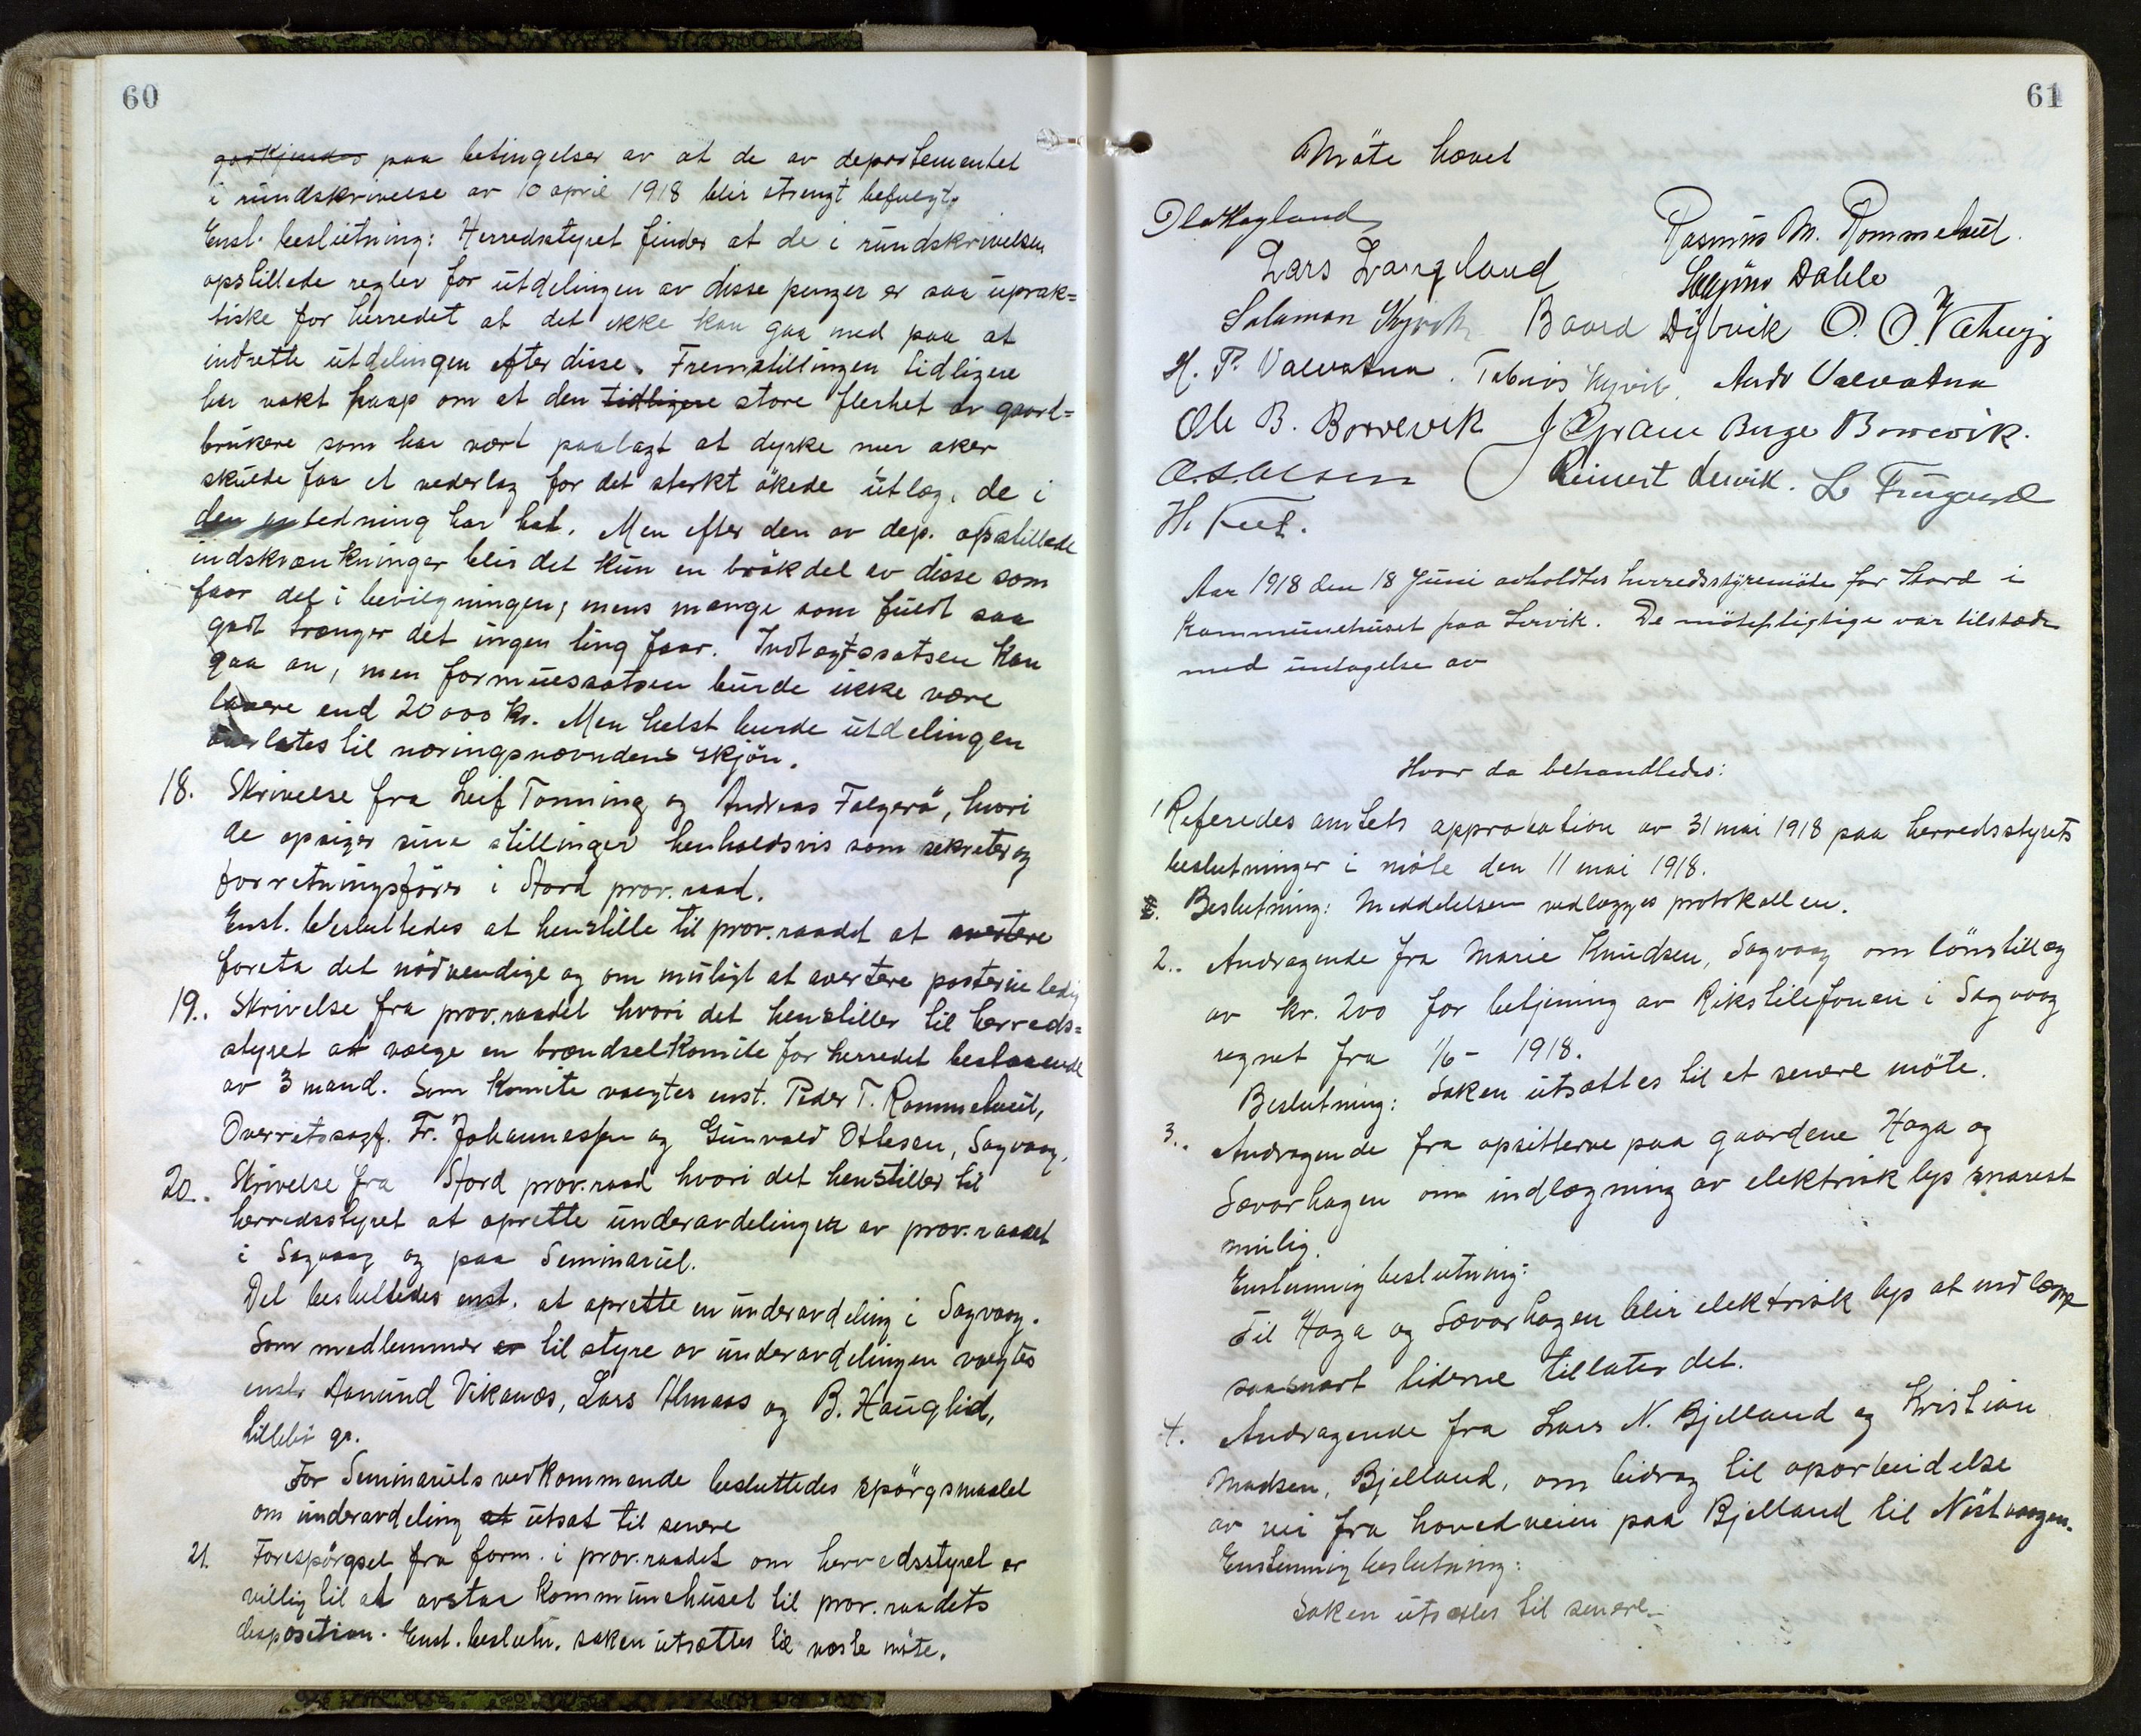 60
godkjendes paa betingelser av at de av departementet
i rundskrivelse av 10 april 1918 blir strengt befulgt.
Enst. beslutning: Herredsstyret finder at de i rundskrivelsen
opstillede regler for utdelingen av disse penger er saa uprak=
tiske for herredet at det ikke kan gaa med paa at
indrette utdelingen efter disse. Fremstillingen tidligere
har vakt haap om at den tidligere store flerhet av gaard=
brukere som har vært paalagt at dyrke mer aker
skulde faa et vederlag for det sterkt økede utlæg, de i
den anledning har hat. Men efter den av dep. opstillede
indskrænkninger blir det kun en brøkdel av disse som
faar del i bevilgningen, mens mange som fuldt saa
godt trænger det ingen ting faar. Indtægtssatsen kan
gaa an, men formuessatsen burde ikke være
lavere end 20000 kr. Men helst burde utdelingen
overlates til næringsnævndens skjøn.
18. Skrivelse fra Leif Tonning og Andreas Falgerø, hvori
de opsiger sine stillinger henholdsvis som sekretær og
forretningsfører i Stord prov.raad.
Enst. besluttedes at henstille til prov.raadet at avertere
foreta det nødvendige og om muligt at avertere posterne ledig
19.. Skrivelse fra prov.raadet hvori det henstiller til herreds=
styret at vælge en brændselkomite for herredet bestaaende
av 3 mand. Som komite valgtes enst. Peder T. Rommetveit,
Overretssagf. Fr. Johannessen og Gunvald Ottesen, Sagvaag.
20. Skrivelse fra Stord prov.raad hvori det henstiller til
herredsstyret at oprette underavdelingen av prov.raadet
i Sagvaag og paa Seminariet.
Det besluttedes enst. at oprette en underavdeling i Sagvaag.
Som medlemmer av til styre av underavdelingen valgtes
enst. Aamund Vikanes, Lars Almaas og B. Hauglid,
Litlebø gr.
For Seminariets vedkommende besluttedes spørgsmaalet
om underavdeling at utsat til senere
21. Forespørgsel fra form. i prov.raadet om herredsstyret er
villig til at avstaa kommunehuset til prov.raadets
disposition. Enst. beslutn. saken utsættes til næste møte.
61
Møte hævet
Ola Hagland Rasmus M. Rommetveit.
Lars Langeland Dahle
Salamon Kyvik Baard Dybvik O. O.
H. P. Valvatna. Tobias Kyvik. Andr Valvatna
Ole B. Borrevik J Børge Borrevik.
O. S. Olsen Reinert Lervik.
H.
Aar 1918 den 18 Juni avholdtes herredsstyremøte for Stord i
Kommunehuset paa Lervik. De møtepligtige var tilstæde
med undtagelse av
Hvor da behandledes:
1 Referedes amtets approbation av 31 mai 1918 paa herredsstyrets
beslutninger i møte den 11 mai 1918.
Beslutning: Meddelelsen vedlægges protokollen.
2.. Andragende fra Marie Knudsen, Sagvaag om lønstillæg
av kr. 200 for betjening av Rikstelefonen i Sagvaag
regnet fra 1/6- 1918.
Beslutning: Saken utsættes til et senere møte.
3.. Andragende fra opsitterne paa gaardene Haga og
Sævarhagen om indlægning av elektrisk lys snarest
mulig.
Enstemmig beslutning:
Til Haga og Sævarhagen blir elektrisk lys at indlægge
saasnart tiderne tillater det.
4. Andragende fra Lars N. Bjelland og Kristian
Madsen, Bjelland, om bidrag til oparbeidelse
av vei fra hovedveien paa Bjelland til Nøstvaagen.
Enstemmig beslutning:
Saken utsættes til senere.